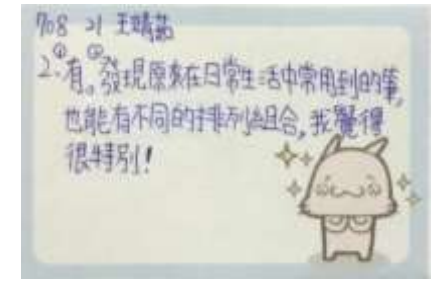 708 21 王晴茹
① ②
2、有。發現原來在日常生活中常用到的筆,
也能有不同的排列組合,我覺得
很特別!